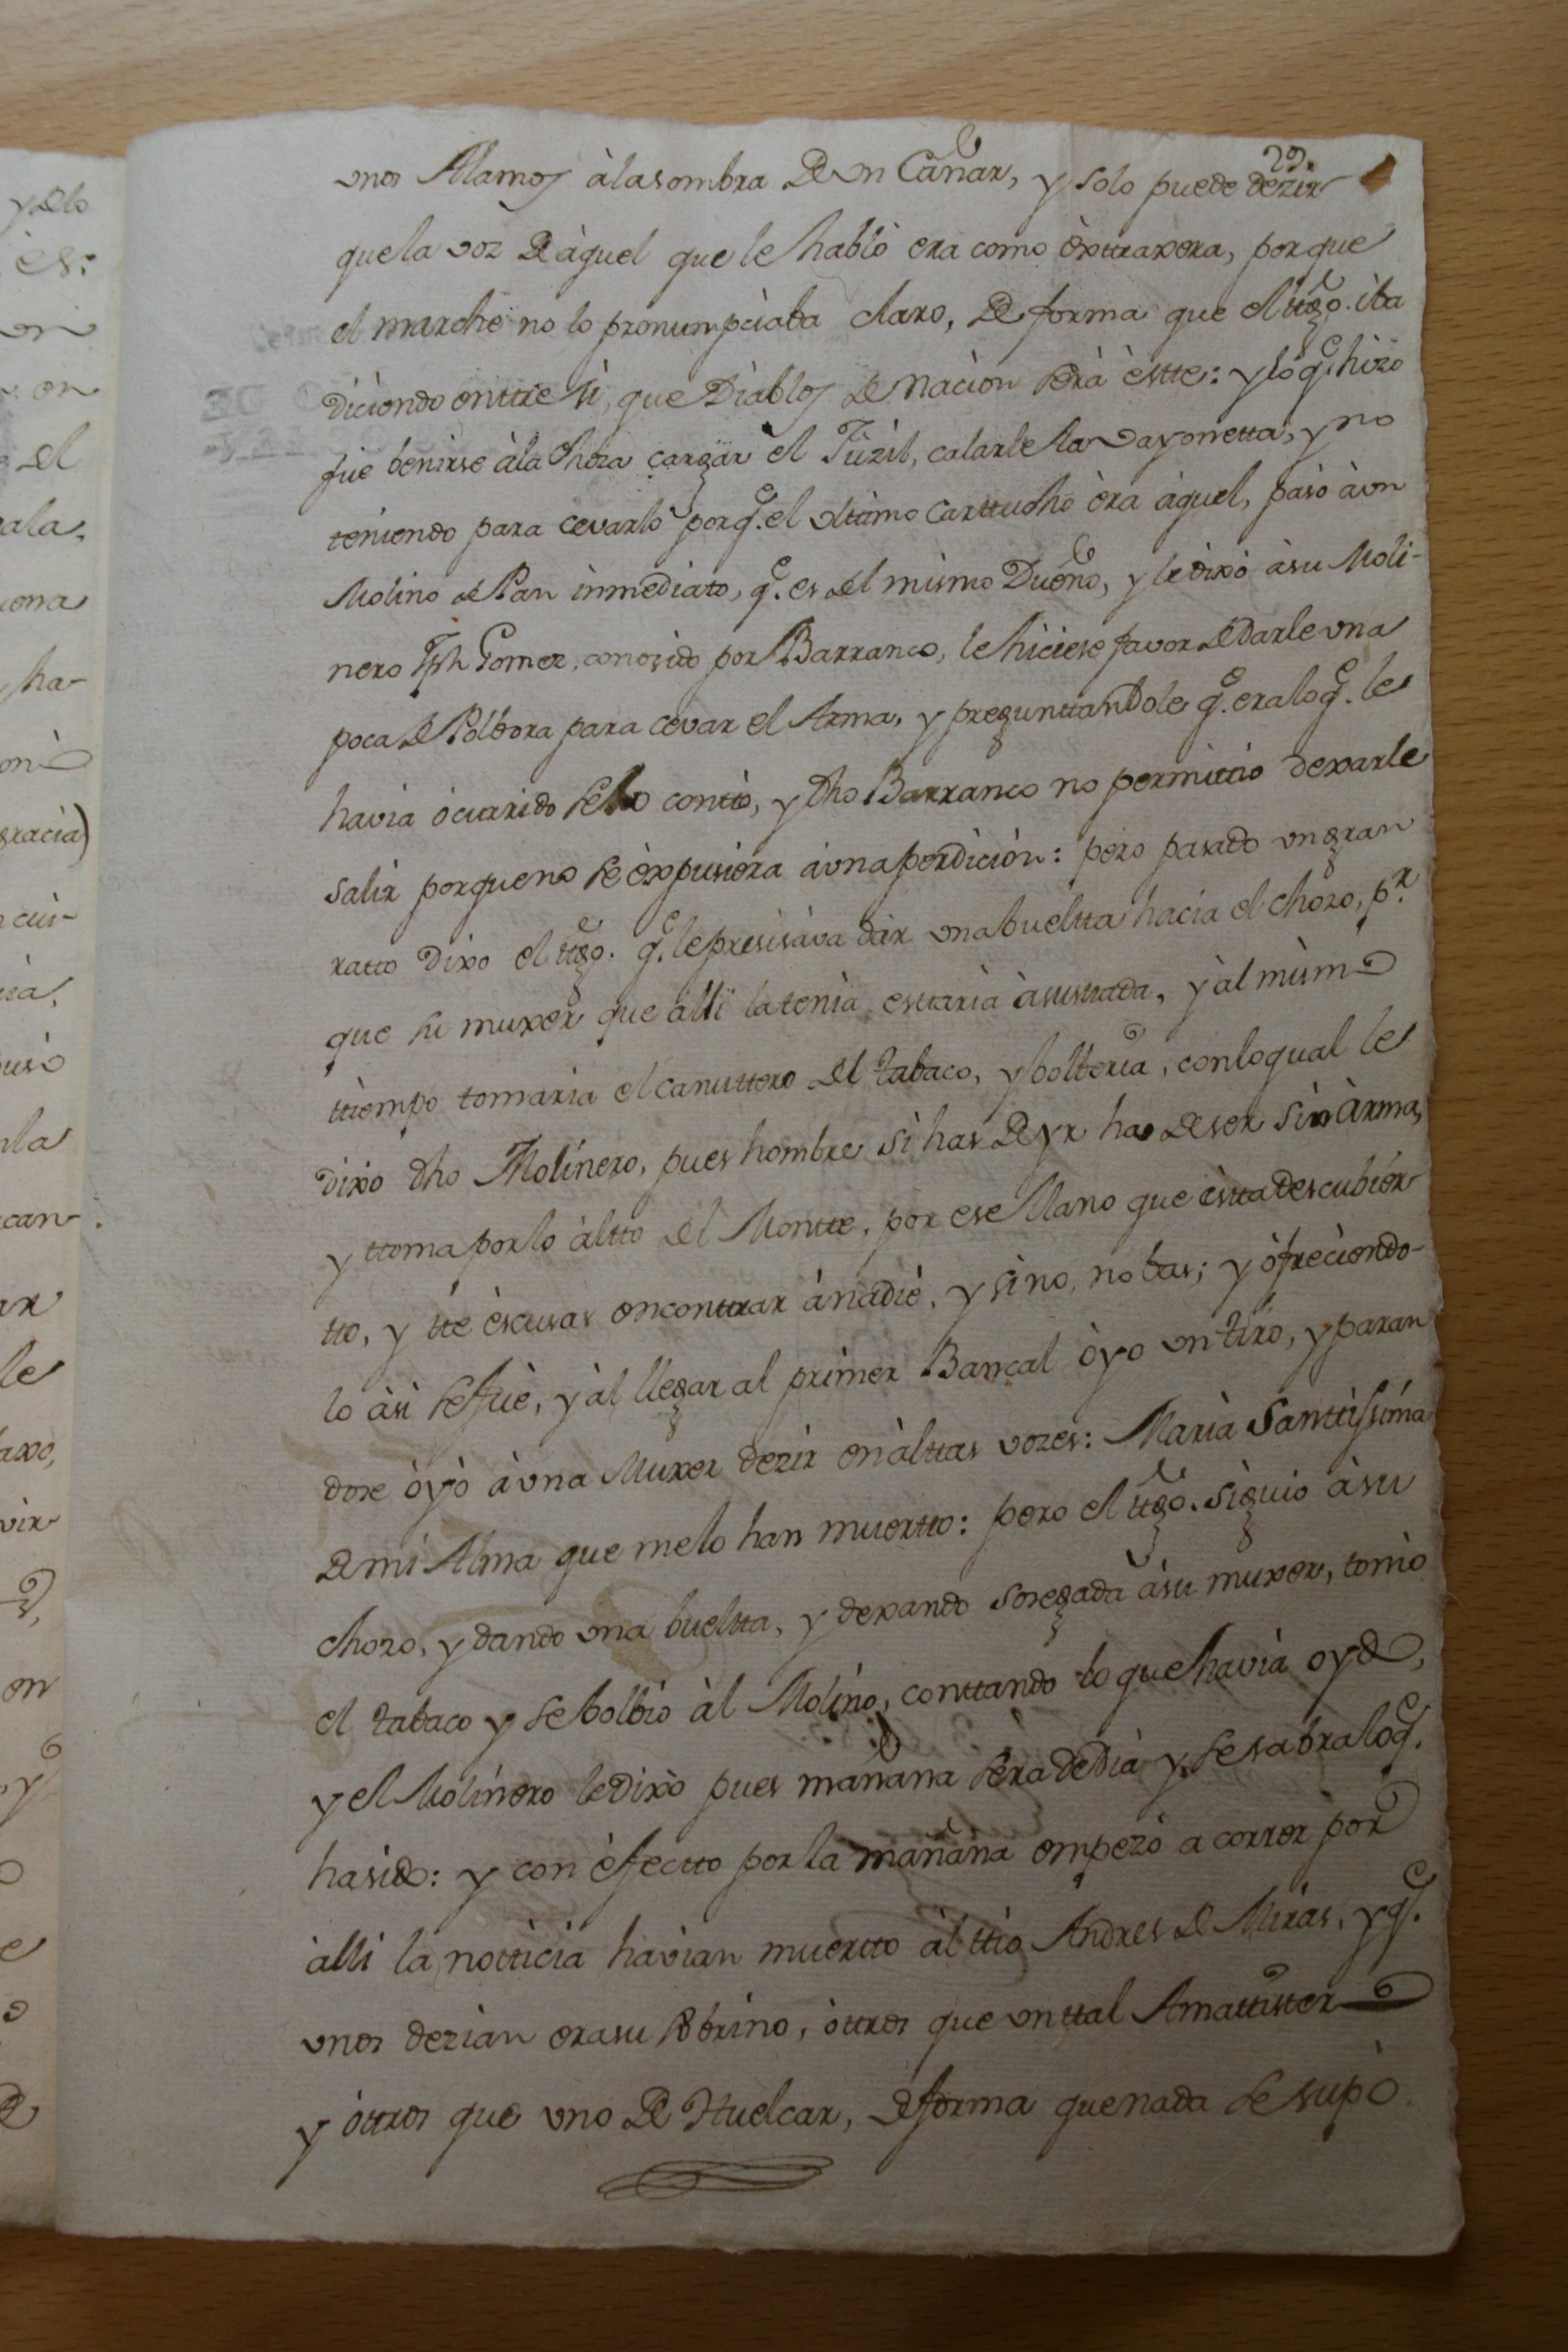 29.
unos Alamos à la sombra de un Cañar, y solo puede dezir
que la voz de àquel que le hablò era como èxttraxera, porque
el marche no lo pronumpciaba claro, de forma que el ttgo. iba
diciendo enttre sì, que Diablos de Nacion serà èstte: y lo q.e hizo
fue benirse à la Choza cargàr el Fuzil, calarle la vayonetta, y no
teniendo para cevarlo porq.e el ultimo Carttucho èra àquel, pasò à un
Molino de Pan inmediato, q.e es del mismo Dueño, y le dixò à su Moli-
nero Jph Gomez, conosido por Barranco, le hiciese favor de darle una
poca de Polbora para cevar el Arma, y preguntandole q.e era lo q.e le
havia òcurrido se lo conttò, y dho Barranco no permittio dexarle
salir porque no se èxpusiera à una perdiciòn: pero pasado un gran
ratto dixo el ttgo. q.e le presisàva dàr una bueltta hacia el chozo, p.r
que su muxer que allì la tenìa esttarìa àsusttada, y àl mismo
ttiempo tomaria el canuttero del tabaco, y bolberìa, con lo qual le
dixo dho Molinero, pues hombre si has de yr has de ser sin àrmas,
y ttoma por lo àltto del Montte, por ese llano que èstta descubier-
tto, y tte èscusas enconttrar à nadiè, y si no, no bas; y òfreciendo-
lo àsi se fuè, y àl llegar al primer Bancal òyo un tiro, y paran
dose òyò à una Muxer dezir en àlttas vozes: Marìa Santtissima
de mi Alma que me lo han muertto: pero el ttgo. siguio à su
chozo, y dando una bueltta, y dexando sosegada à su muxer, tomò
el tabaco y se bolbiò àl Molino, conttando lo que havìa oydo,
y el Molinero le dixò pues mañana serà de dìa y se sabra lo q.e
ha sido: y con èfectto por la mañana empezò a correr por
àlli la notticia havian muertto àl ttio Andres de Miras, y q.e
unos dezian era su sobrino, òttros que un ttal Amattistter
y òttros que uno de Huelcar, de forma que nada se supò